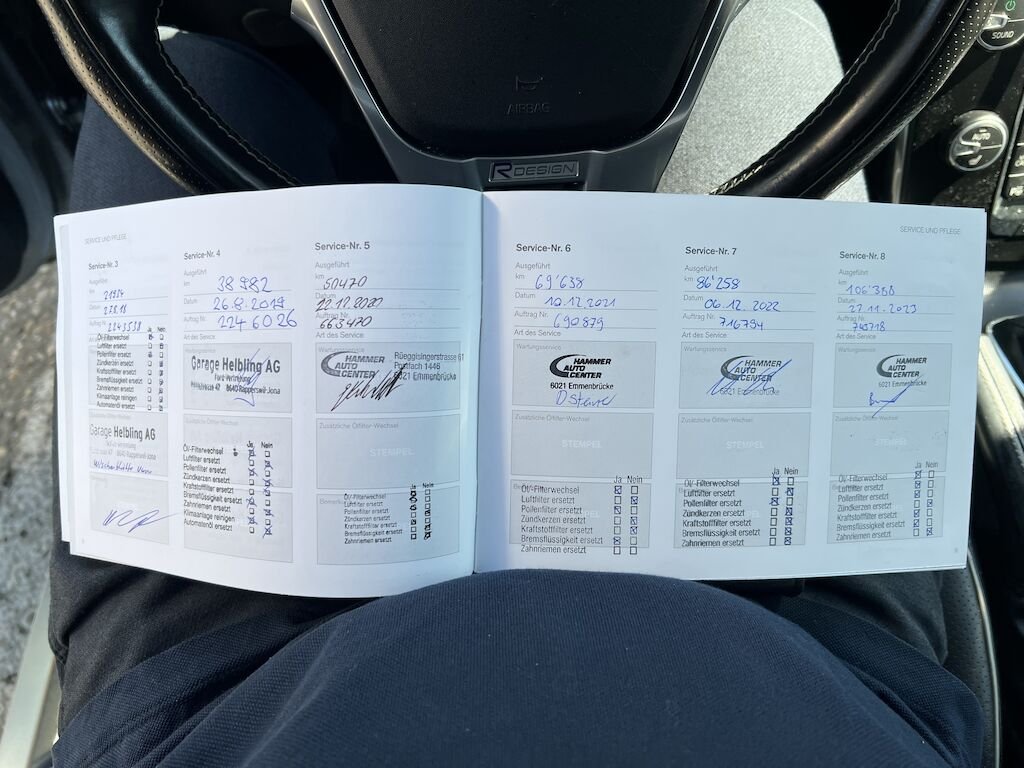 SOUND
AUTO
AIRBAG
R DESIGN
SERVICE UND PFLEGE
Service-Nr. 3
Ausgeführt
km
21974
Datum
27.8.18
Auftrag Nr.
2243538
Ja Nein
Öl-Filterwechsel
Luftfilter ersetzt
Pollenfilter ersetzt
Zündkerzen ersetzt
Kraftstofffilter ersetzt
Bremsflüssigkeit ersetzt
Zahnriemen ersetzt
Klimaanlage reinigen
Automatenöl ersetzt
Zusätzliche Ölfilter-Wechsel
Garage Helbling AG
8640 Rapperswil-Jona
Service-Nr. 4
Ausgeführt
km
38982
Datum 26.8.2019
Auftrag Nr. 2246026
Art des Service
Wartungsservice
Garage Helbling AG
Ford Vertretung
8640 Rapperswil-Jona
Zusätzliche Ölfilter-Wechsel
Ja Nein
Öl-Filterwechsel
Luftfilter ersetzt
Pollenfilter ersetzt
Zündkerzen ersetzt
Kraftstofffilter ersetzt
Bremsflüssigkeit ersetzt
Zahnriemen ersetzt
Klimaanlage reinigen
Automatenöl ersetzt
Service-Nr. 5
Ausgeführt
km
50470
Datum
22.12.2020
Auftrag Nr.
663470
Art des Service
Wartungsservice
HAMMER AUTO CENTER
Rüeggisingerstrasse 61
Postfach 1446
6021 Emmenbrücke
Zusätzliche Ölfilter-Wechsel
STEMPEL
Ja Nein
Öl-Filterwechsel
Luftfilter ersetzt
Pollenfilter ersetzt
Zündkerzen ersetzt
Kraftstofffilter ersetzt
Bremsflüssigkeit ersetzt
Zahnriemen ersetzt
SERVICE UND PFLEGE
Service-Nr. 6
Ausgeführt
km 69'638
Datum 10.12.2021
Auftrag Nr. 690879
Art des Service
Wartungsservice
HAMMER
AUTO
CENTER
6021 Emmenbrücke
Zusätzliche Ölfilter-Wechsel
STEMPEL
Ja Nein
Öl-Filterwechsel
Luftfilter ersetzt
Pollenfilter ersetzt
Zündkerzen ersetzt
Kraftstofffilter ersetzt
Bremsflüssigkeit ersetzt
Zahnriemen ersetzt
Service-Nr. 7
Ausgeführt
km 86'258
Datum 06.12.2022
Auftrag Nr. 716794
Art des Service
Wartungsservice
HAMMER
AUTO
CENTER
6021 Emmenbrücke
Zusätzliche Ölfilter-Wechsel
STEMPEL
Ja Nein
Öl-Filterwechsel
Luftfilter ersetzt
Pollenfilter ersetzt
Zündkerzen ersetzt
Kraftstofffilter ersetzt
Bremsflüssigkeit ersetzt
Zahnriemen ersetzt
Service-Nr. 8
Ausgeführt
km 106'388
Datum 27.11.2023
Auftrag Nr. 743718
Art des Service
Wartungsservice
HAMMER
AUTO
CENTER
6021 Emmenbrücke
Zusätzliche Ölfilter-Wechsel
STEMPEL
Ja Nein
Öl-Filterwechsel
Luftfilter ersetzt
Pollenfilter ersetzt
Zündkerzen ersetzt
Kraftstofffilter ersetzt
Bremsflüssigkeit ersetzt
Zahnriemen ersetzt